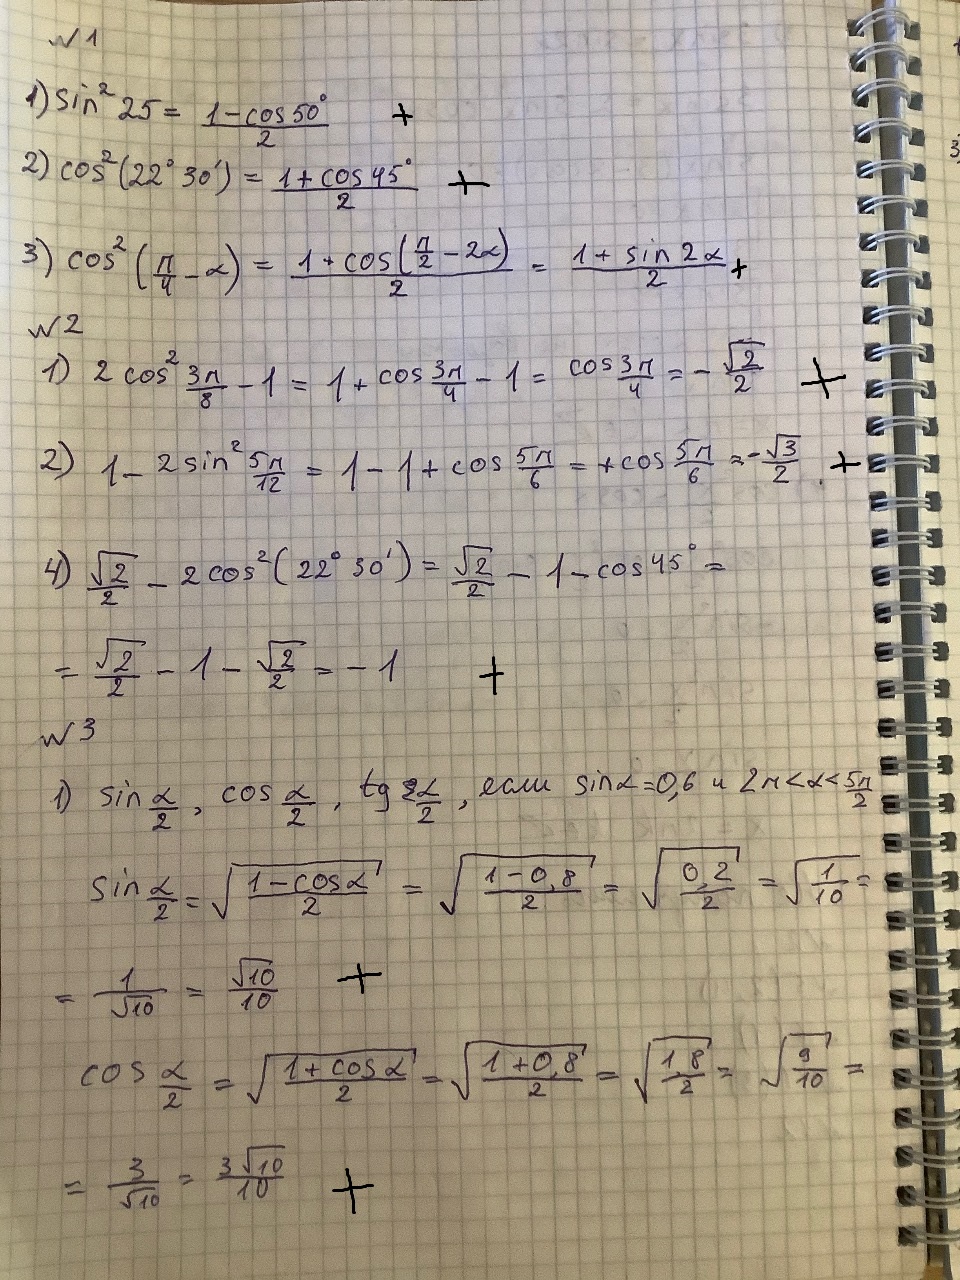 №1
1) sin² 25 = (1 - cos 50°)/2 +
2) cos² (22° 30') = (1 + cos 45°)/2 +
3) cos² (π/4 - α) = (1 + cos(π/2 - 2α))/2 = (1 + sin 2α)/2 +
№2
1) 2 cos² 3π/8 - 1 = 1 + cos 3π/4 - 1 = cos 3π/4 = - √2/2 +
2) 1 - 2 sin² 5π/12 = 1 - 1 + cos 5π/6 = + cos 5π/6 = - √3/2 . +
4) √2/2 - 2 cos² (22° 30') = √2/2 - 1 - cos 45° =
= √2/2 - 1 - √2/2 = - 1 +
№3
1) sin α/2, cos α/2, tg α/2, если sin α = 0,6 и 2π < α < 5π/2
sin α/2 = √((1 - cos α)/2) = √((1 - 0,8)/2) = √(0,2/2) = √(1/10) =
= 1/√10 = √10/10 +
cos α/2 = √((1 + cos α)/2) = √((1 + 0,8)/2) = √(1,8/2) = √(9/10) =
= 3/√10 = 3√10/10 +